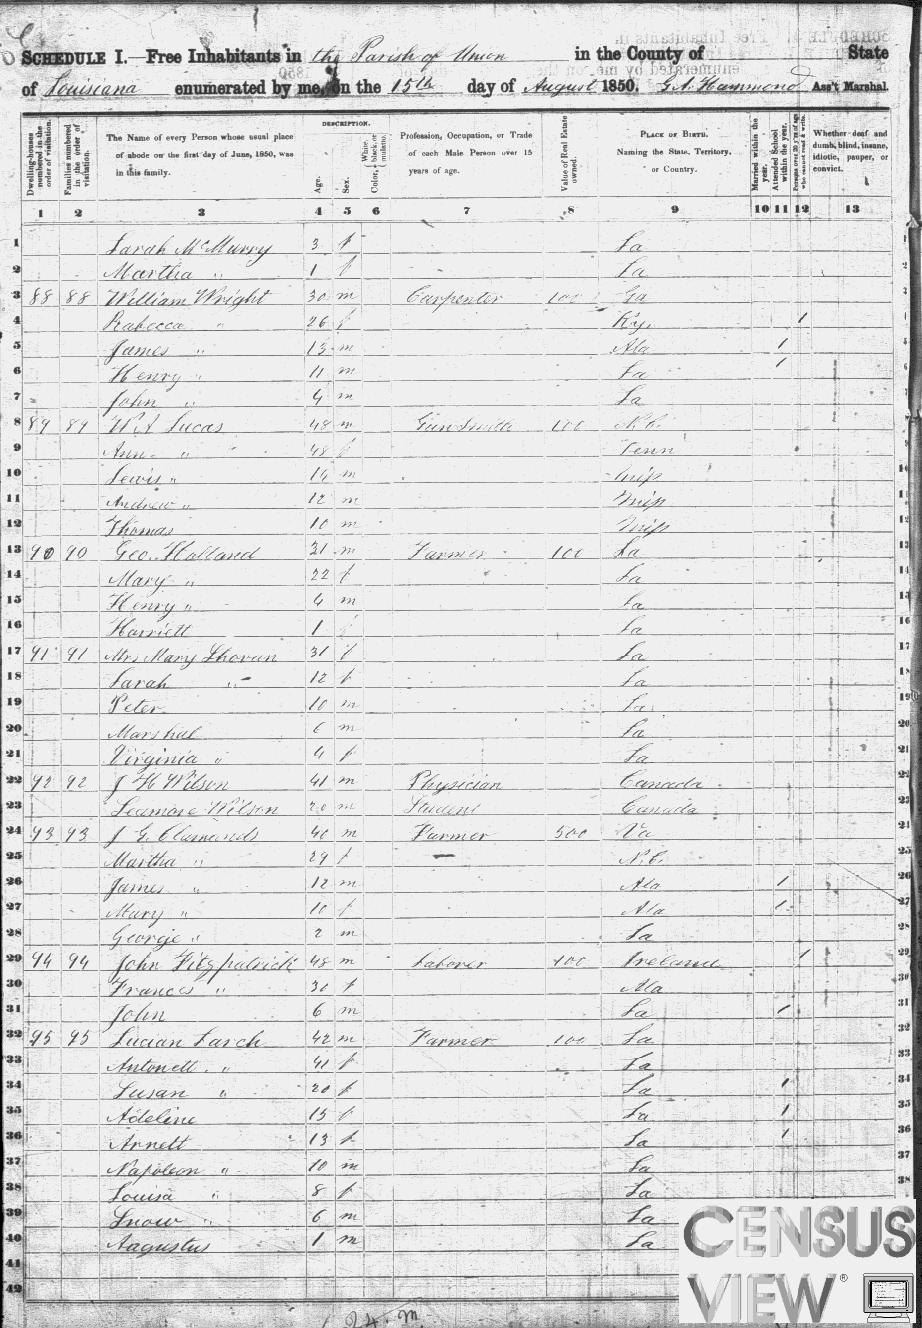 SCHEDULE I.—Free Inhabitants in the Parish of Union in the County of State
of Louisiana enumerated by me, on the 15th day of August 1850. G.A. Hammond Ass't Marshal.
Dwelling-houses numbered in the order of visitation.
Families numbered in the order of visitation.
The Name of every Person whose usual place of abode on the first day of June, 1850, was in this family.
DESCRIPTION.
Age.
Sex.
Color, White, black, or mulatto.
Profession, Occupation, or Trade of each Male Person over 15 years of age.
Value of Real Estate owned.
PLACE OF BIRTH. Naming the State, Territory, or Country.
Married within the year.
Attended School within the year.
Persons over 20 y'rs of age who cannot read & write.
Whether deaf and dumb, blind, insane, idiotic, pauper, or convict.
1 2 3 4 5 6 7 8 9 10 11 12 13
1 Sarah McMurry 3 f La
2 Martha " 1 f La
3 88 88 William Wright 30 m Carpenter 100 Ga
4 Rabecca " 26 f Ky. 1
5 James " 13 m Ala 1
6 Henry " 11 m La 1
7 John " 4 m La
8 89 89 W A Lucas 48 m Gunsmith 100 N.C.
9 Ann " 48 f Tenn
10 Lewis " 14 m Miss
11 Andrew " 12 m Miss
12 Thomas 10 m Miss
13 90 90 Geo. Holland 21 m Farmer 100 La
14 Mary " 22 f La
15 Henry " 4 m La
16 Harriett 1 f La
17 91 91 Mrs Mary 31 f La
18 Sarah " 12 f La
19 Peter 10 m La
20 Marshal 6 m La
21 Virginia " 4 f La
22 92 92 J H Wilson 41 m Physician Canada
23 Wilson 20 m Student Canada
24 93 93 J G. Clamonds 40 m Farmer 500 Va
25 Martha " 29 f — N.C.
26 James " 12 m Ala 1
27 Mary " 10 f Ala 1
28 George " 2 m La
29 94 94 John Fitzpatrick 48 m Laborer 100 Ireland 1
30 Frances " 30 f Ala
31 John 6 m La 1
32 95 95 Lucian Larch 42 m Farmer 100 La
33 Antonett " 41 f La
34 Susan " 20 f La 1
35 Adeline 15 f La 1
36 Arnett 13 f La 1
37 Napoleon " 10 m La
38 Louisa " 8 f La
39 Snow " 6 m La
40 Augustus 1 m La
41
42
24 m
CENSUS
VIEW®